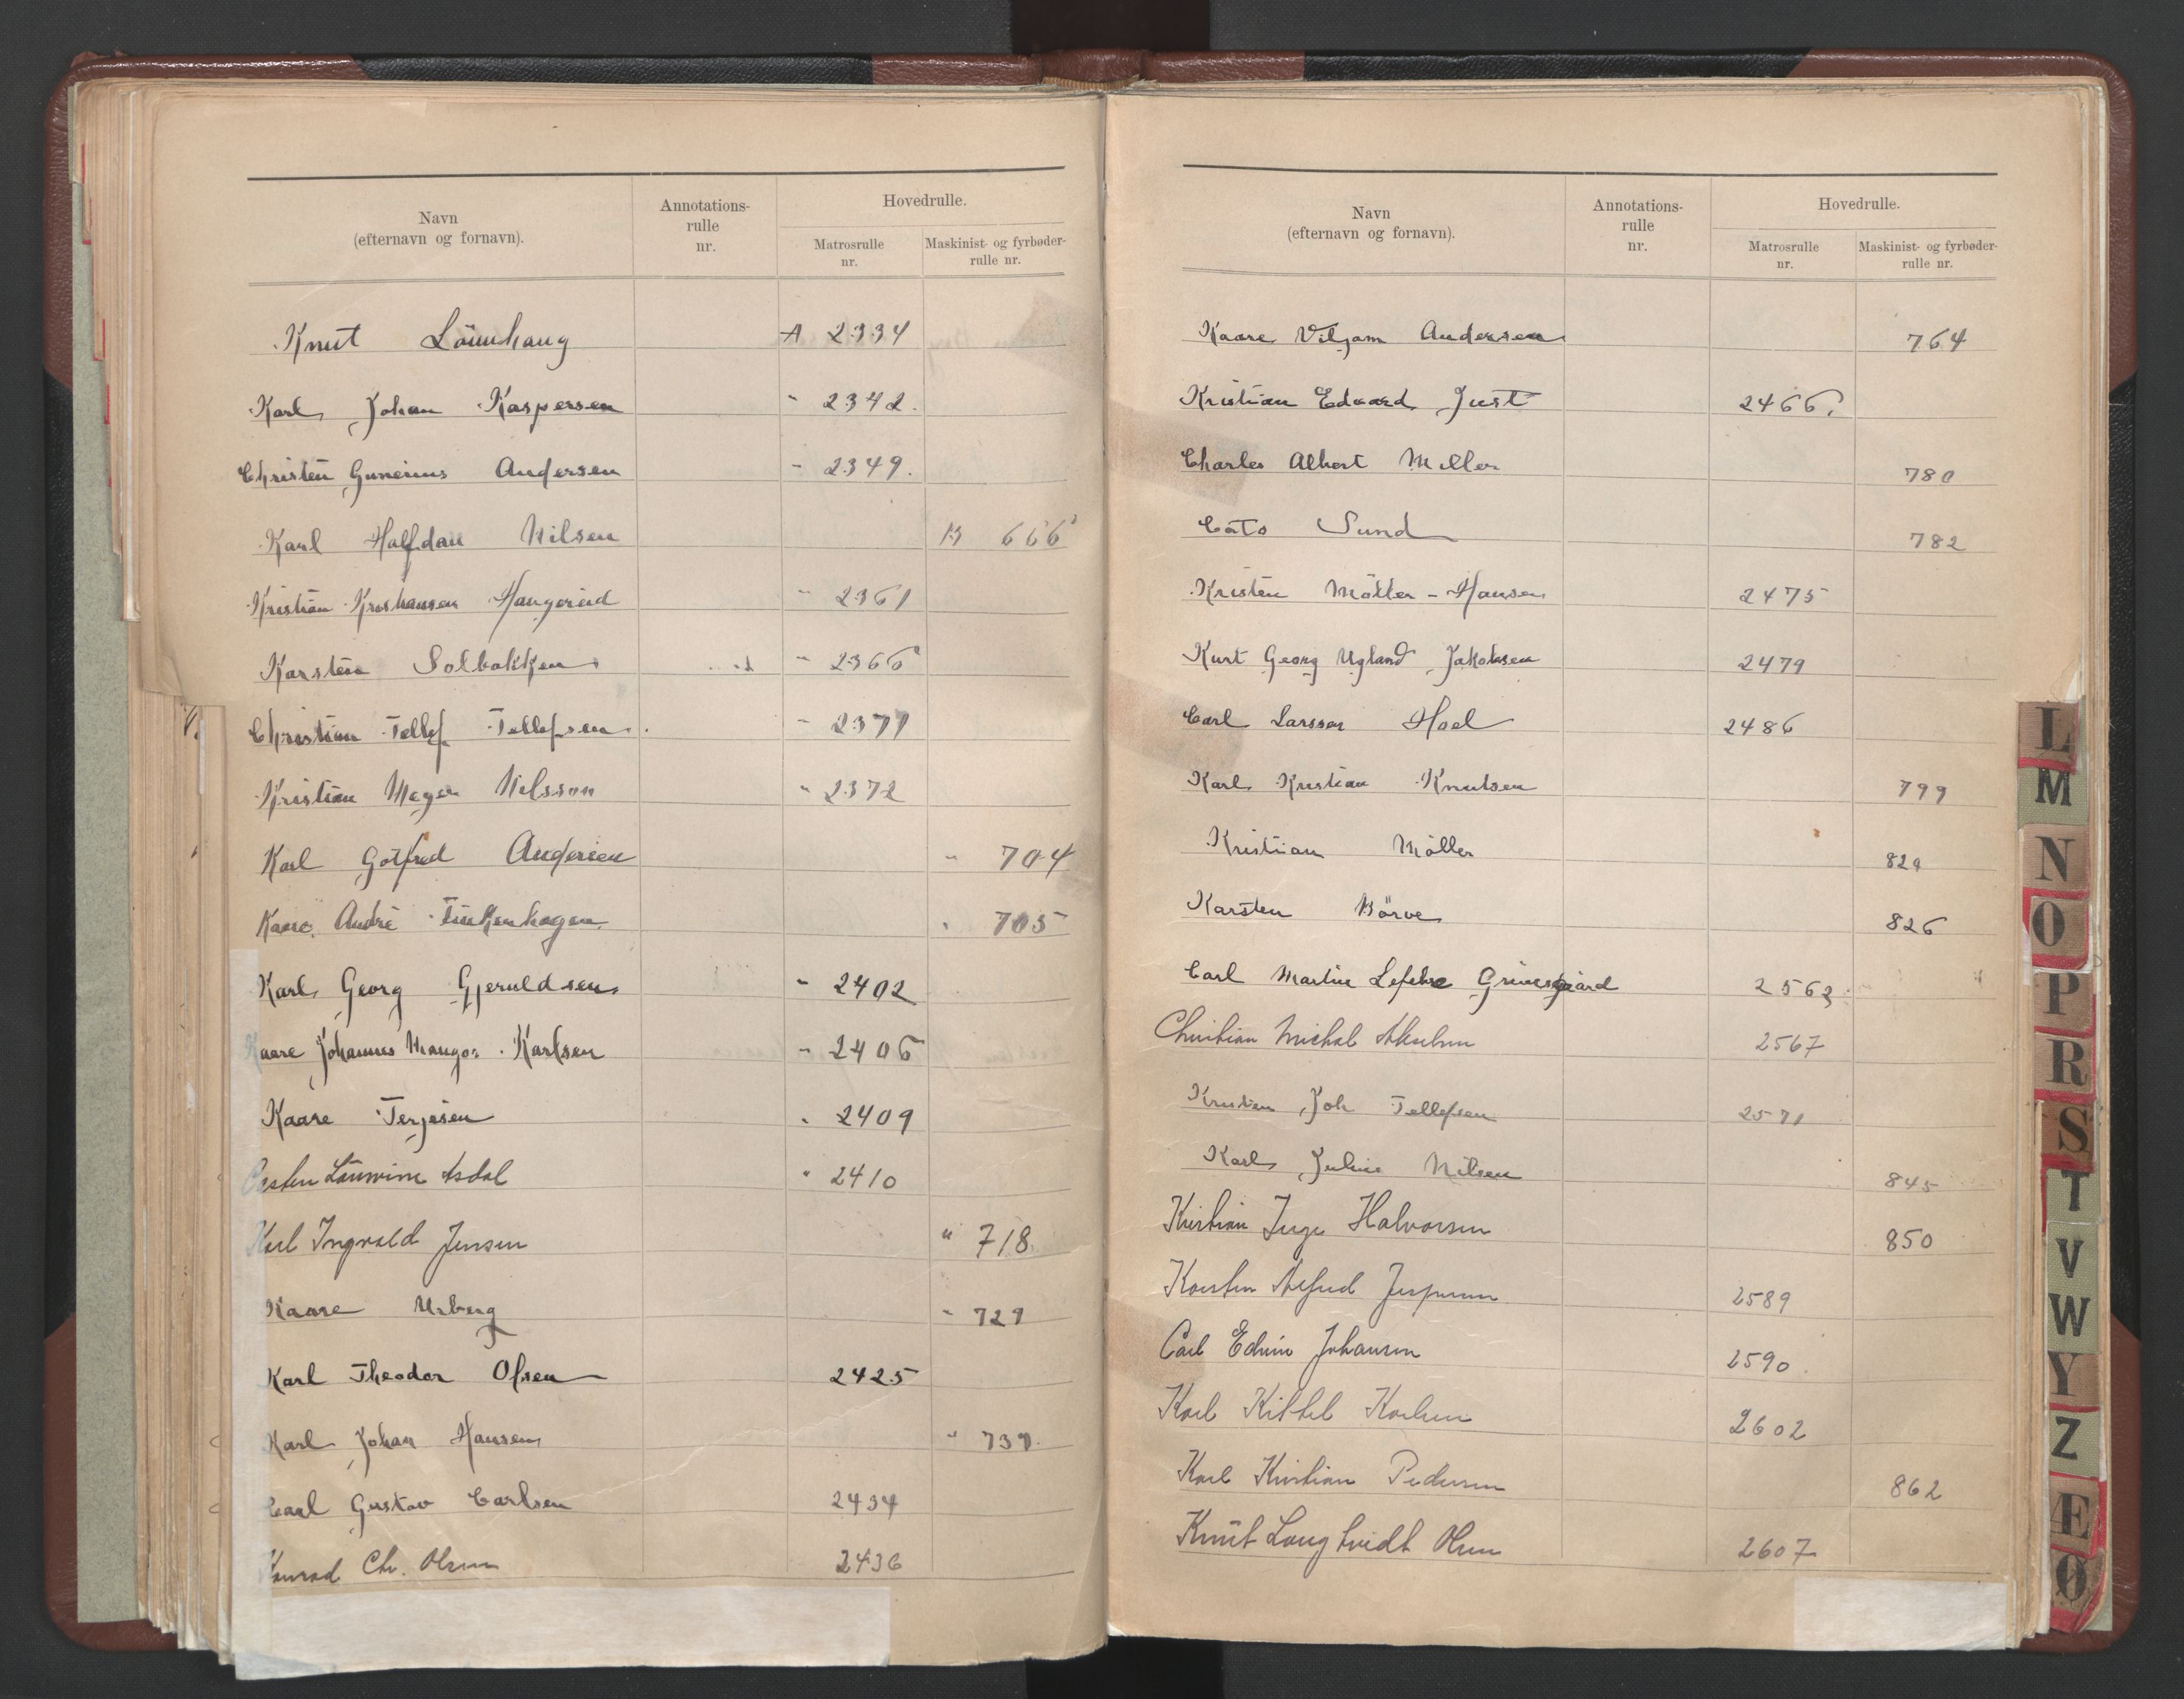 Navn
(efternavn og fornavn).
Annotations-
rulle
nr.
Hovedrulle.
Matrosrulle
nr.
Maskinist- og fyrbøder-
rulle nr.
Knut A 2334
Karl Johan Kaspersen " 2342.
Christen Gunerius Andersen " 2349.
Karl Halfdan Nilsen B 666
Kristian Kristiansen Haugerud " 2361
Karsten Solbakken " 2366
Christian Tellef Tellefsen " 2371
Kristian Meyer Nilsson " 2372
Karl Gotfred Andersen " 704
Kaare André Finkenhagen " 705
Karl Georg Gjeruldsen " 2402
Kaare Johannes Mangor Karlsen " 2406
Kaare Terjesen " 2409
Asdal " 2410
Karl Ingvald Jensen " 718
Kaare Urberg " 729
Karl Theodor Olsen 2425
Karl Johan Hansen " 739
Carl Gustav Carlsen 2434
Konrad Chr. Olsen 2436
Navn
(efternavn og fornavn).
Annotations-
rulle
nr.
Hovedrulle.
Matrosrulle
nr.
Maskinist- og fyrbøder-
rulle nr.
Kaare Viljam Andersen 764
Kristian Edvard Just 2466.
Charles Albert Møller 780
Cato Sund 782
Kristen Möller-Hansen 2475
Kurt Georg Ugland Jakobsen 2479
Carl Larsson Hoel 2486
Karl Kristian Knutsen 799
Kristian Möller 829
Karsten Börve 826
Carl Martin Grimsgaard 2562
Christian Michal Akselsen 2567
Kristen Joh Tellefsen 2571
Karl Julius Nilsen 845
Kristian Inge Halvorsen 850
Karsten Alfred Jespersen 2589
Carl Edvin Johansen 2590
Karl Kittel Karlsen 2602
Karl Kristian Pedersen 862
Knut Langtvidt Olsen 2607
L
M
N
O
P
R
S
T
V
W
Y
Z
Æ
Ø